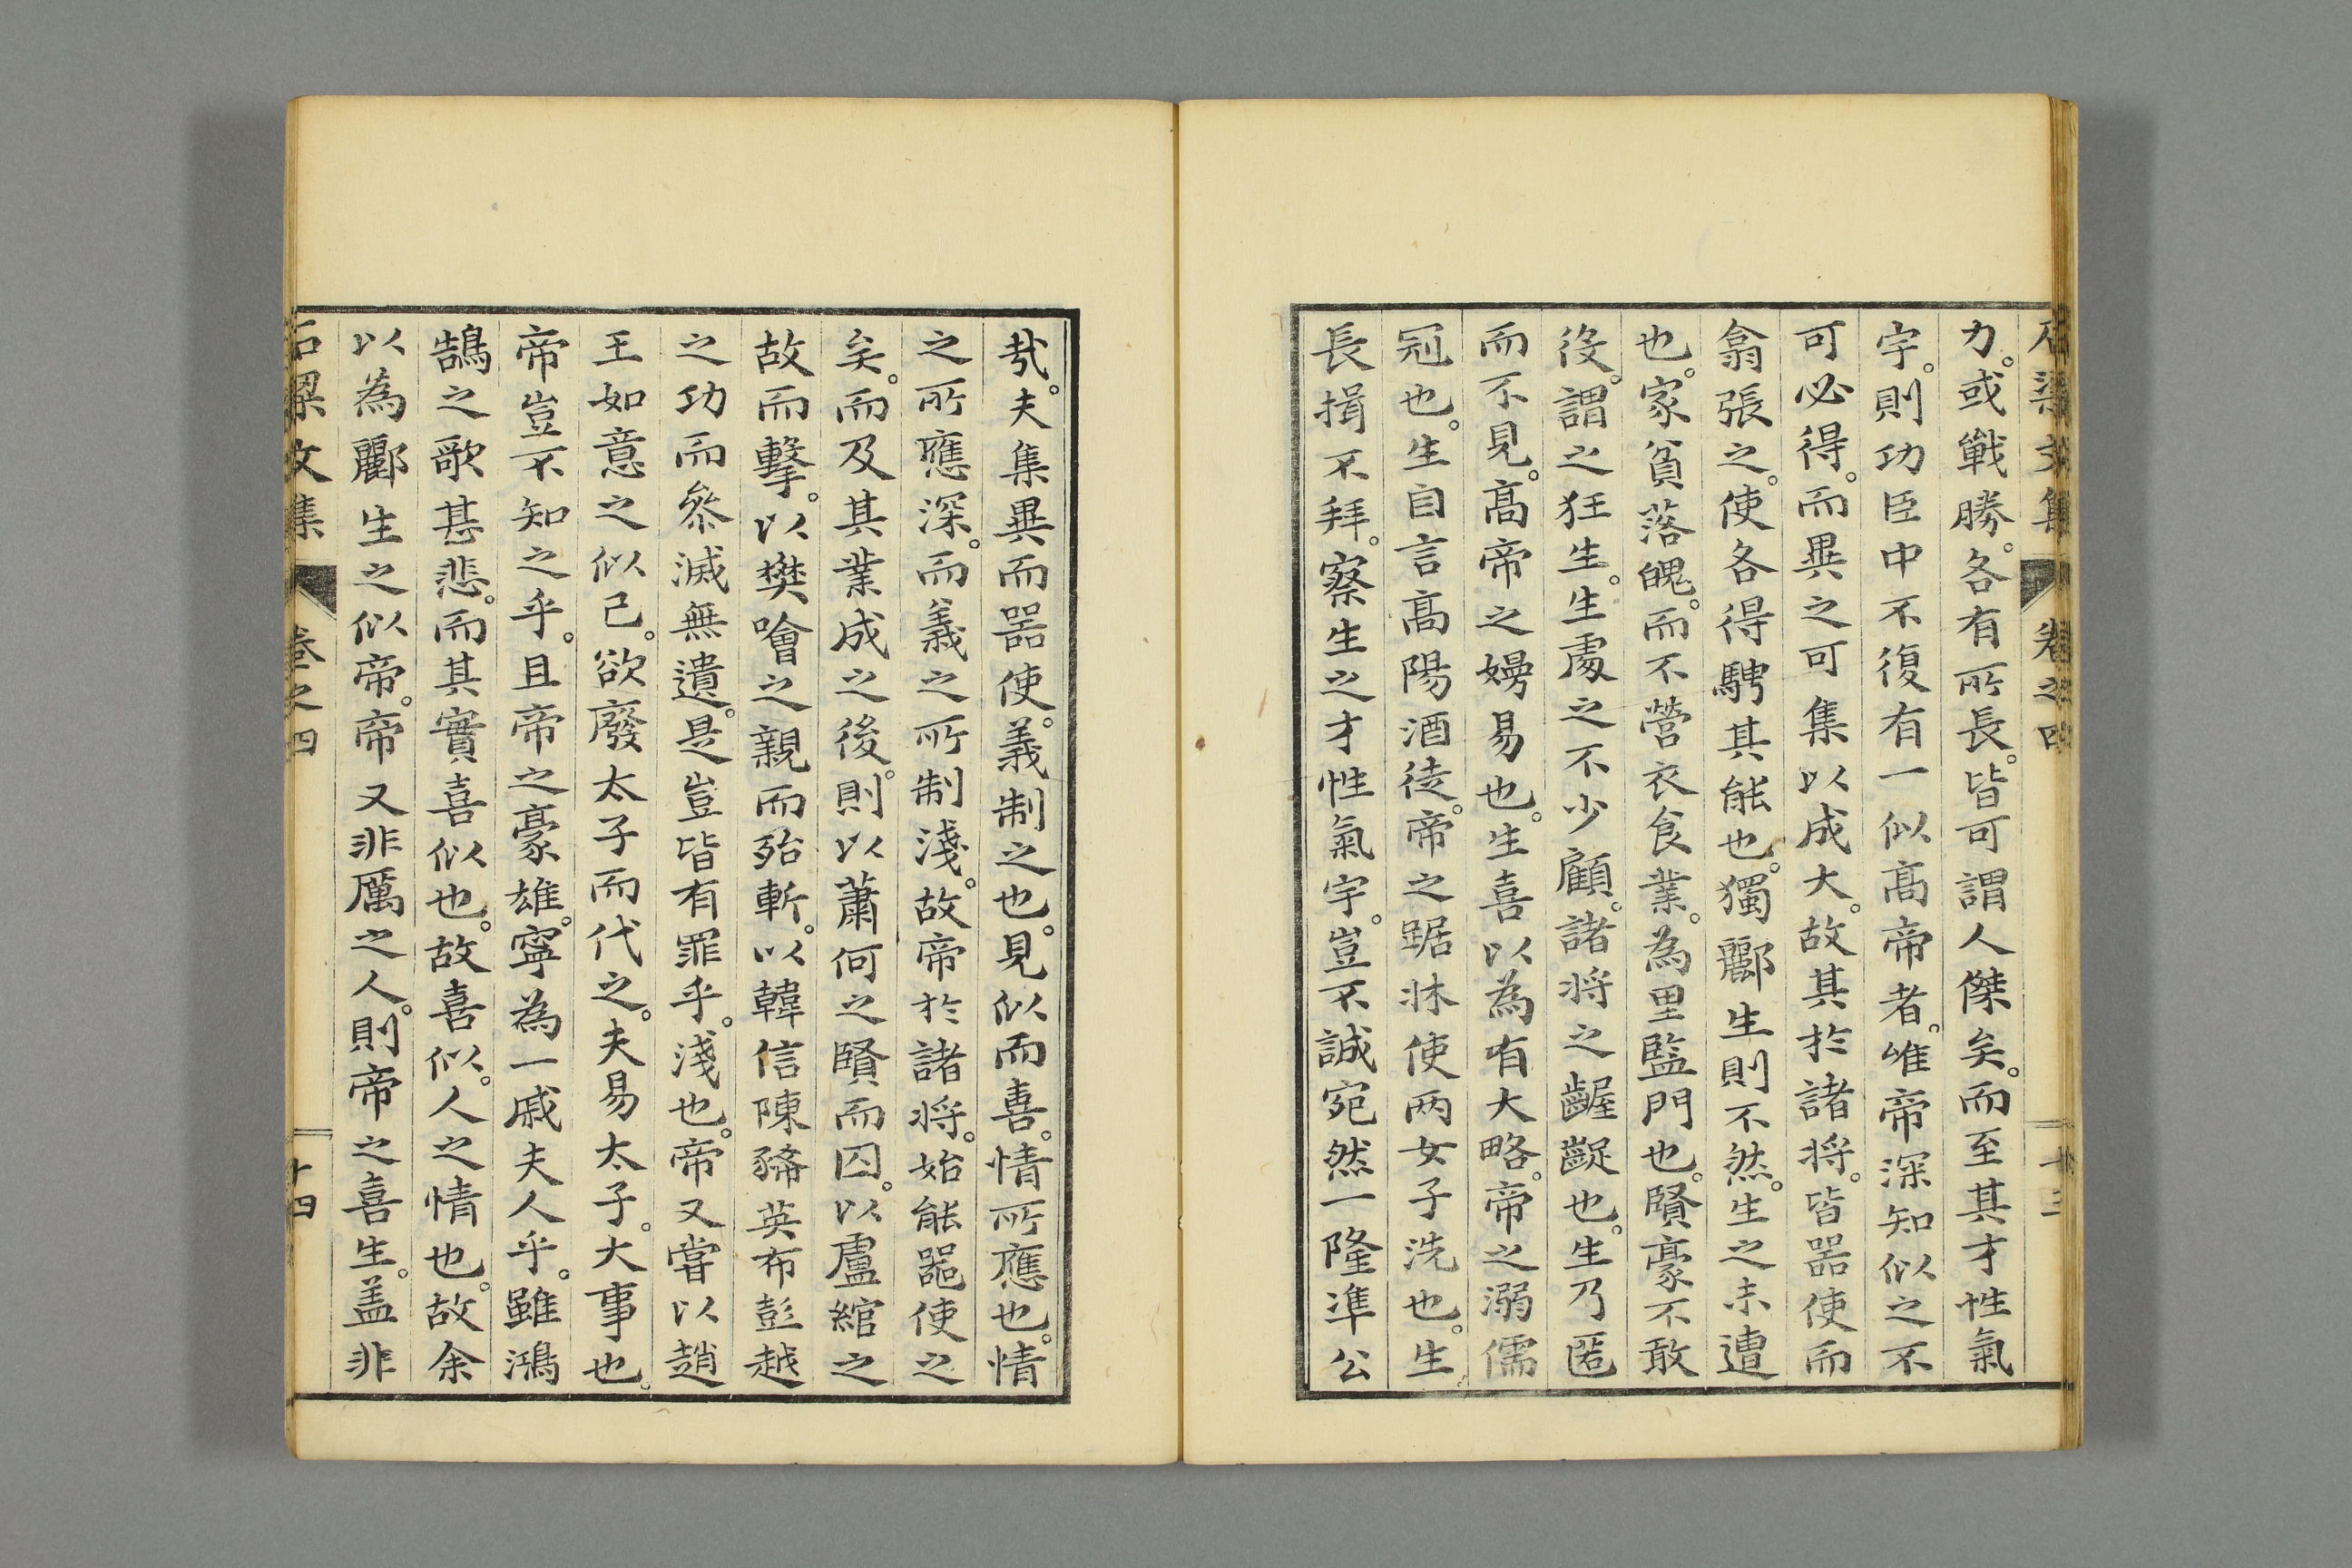 石梁文集 卷之四 十三
力。或戰勝。各有所長。皆可謂人傑矣。而至其才性氣
宇。則功臣中不復有一似高帝者。唯帝深知似之不
可必得。而異之可集以成大。故其於諸將。皆器使而
翕張之。使各得騁其能也。獨酈生則不然。生之未遭
也。家貧落魄。而不營衣食業。為里監門也。賢豪不敢
役。謂之狂生。生處之不少顧。諸將之齷齪也。生乃匿
而不見。高帝之嫚易也。生喜以為有大略。帝之溺儒
冠也。生自言高陽酒徒。帝之踞牀使两女子洗也。生
長揖不拜。察生之才性氣宇。豈不誠宛然一隆準公
㢤。夫集異而器使。義制之也。見似而喜。情所應也。情
之所應深。而義之所制淺。故帝於諸將。始能器使之
矣。而及其業成之後。則以蕭何之賢而囚。以盧綰之
故而擊。以樊噲之親而殆斬。以韓信陳豨英布彭越
之功而叅滅無遺。是豈皆有罪乎。淺也。帝又嘗以趙
王如意之似己。欲廢太子而代之。夫易太子。大事也。
帝豈不知之乎。且帝之豪雄。寧為一戚夫人乎。雖鴻
鵠之歌甚悲。而其實喜似也。故喜似。人之情也。故余
以為酈生之似帝。帝又非厲之人。則帝之喜生。盖非
石梁文集 卷之四 十四